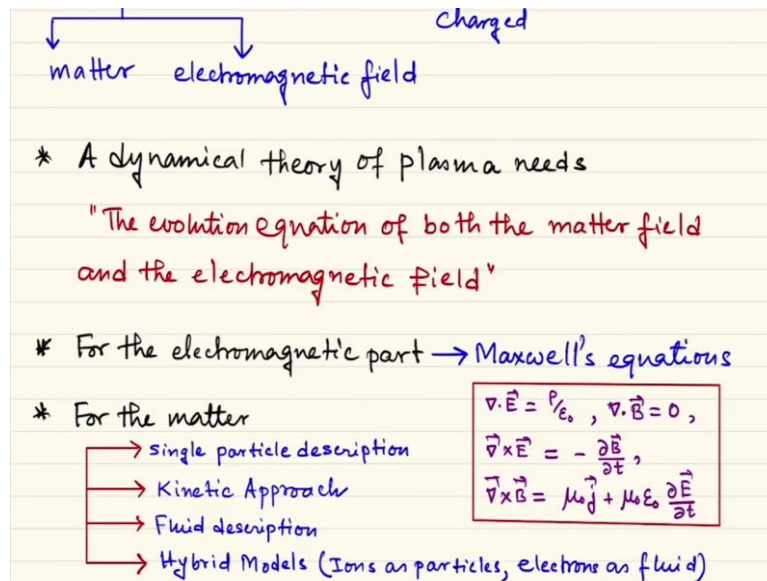 charged
matter electromagnetic field
* A dynamical theory of plasma needs
"The evolution equation of both the matter field
and the electromagnetic field"
* For the electromagnetic part → Maxwell's equations
* For the matter
∇·E⃗ = ρ/ε₀ , ∇·B⃗ = 0 ,
→ Single particle description
∇⃗×E⃗ = - ∂B⃗/∂t ,
→ Kinetic Approach
∇⃗×B⃗ = μ₀j⃗ + μ₀ε₀ ∂E⃗/∂t
→ Fluid description
→ Hybrid Models (Ions as particles, electrons as fluid)